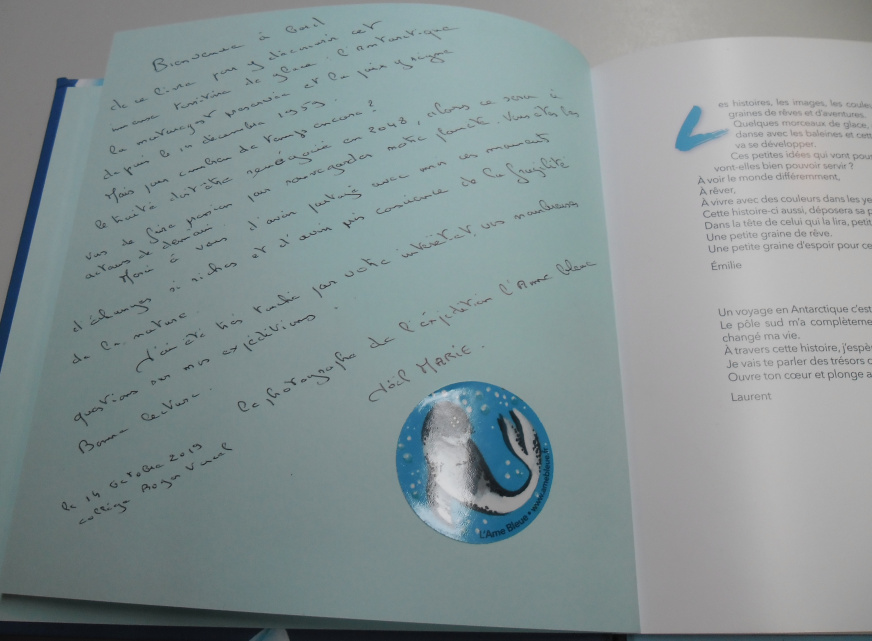 Bienvenue à bord
de ce livre pour y découvrir cet
immense territoire de glace : l'Antarctique
la nature est préservée et la paix y règne
depuis le 1er décembre 1959.
Mais pour combien de temps encore ?
le traité doit être renégocié en 2048, alors ce sera à
vous de faire pression pour sauvegarder notre planète. Vous êtes les
acteurs de demain
Merci à vous d'avoir partagé avec moi ces moments
d'échanges si riches et d'avoir pris conscience de la fragilité
de la nature.
J'ai été très touché par votre intérêt et vos nombreuses
questions sur mes expéditions.
Bonne lecture.
le photographe de l'expédition l'Ame bleue
Joël MARIE.
le 14 Octobre 2019
collège Roger Vercel
L'Ame Bleue • www.amebleue.fr
Les histoires, les images, les coule
graines de rêves et d'aventures.
Quelques morceaux de glace,
danse avec les baleines et cett
va se développer.
Ces petites idées qui vont pous
vont-elles bien pouvoir servir ?
À voir le monde différemment,
À rêver,
À vivre avec des couleurs dans les ye
Cette histoire-ci aussi, déposera sa p
Dans la tête de celui qui la lira, petit
Une petite graine de rêve.
Une petite graine d'espoir pour ce
Émilie
Un voyage en Antarctique c'est
Le pôle sud m'a complèteme
changé ma vie.
À travers cette histoire, j'espè
Je vais te parler des trésors c
Ouvre ton cœur et plonge a
Laurent